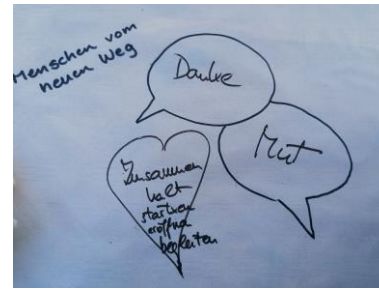 Menschen vom
neuen Weg
Danke
Mut
Zusammen
halt
starten
eröffnen
begleiten